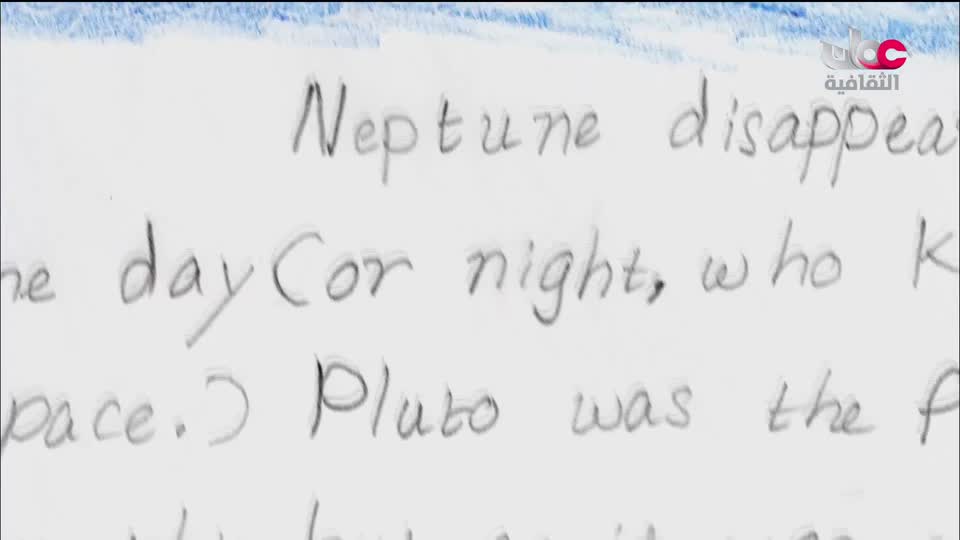 عمان
الثقافية
Neptune disappea
ne day (or night, who k
pace.) Pluto was the